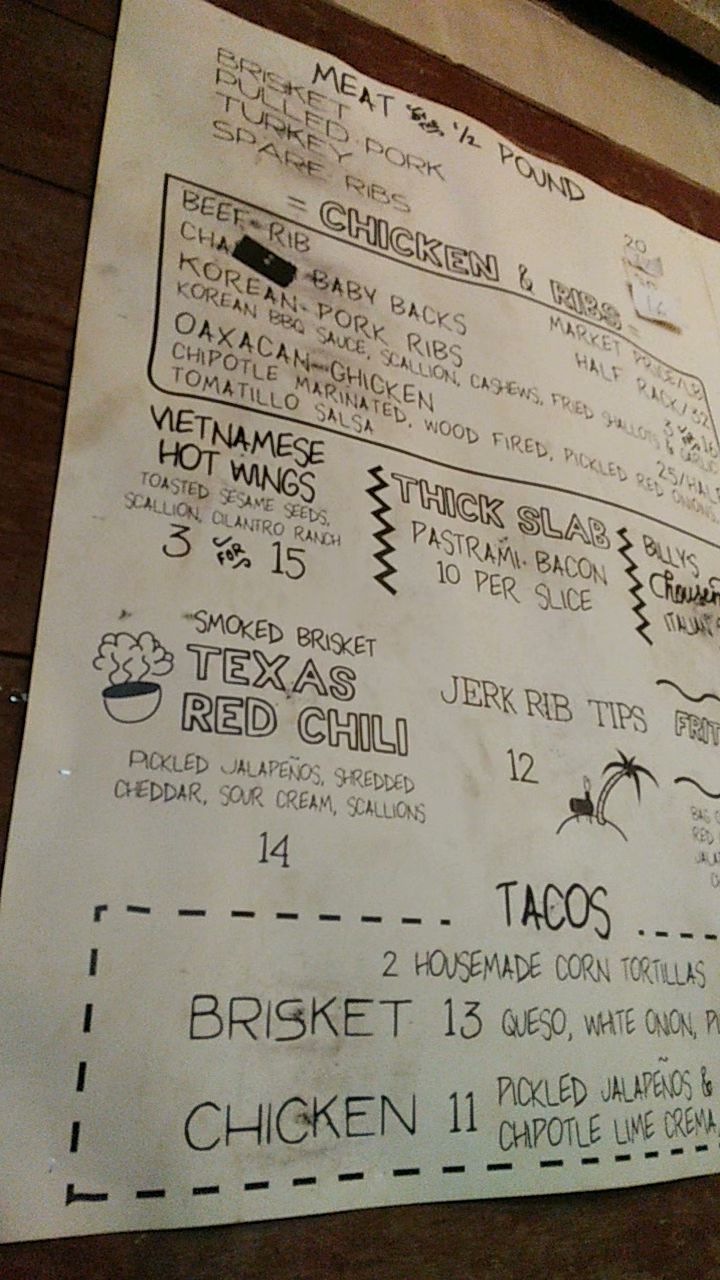 MEAT BY 1/2 POUND
BRISKET 20
PULLED PORK
TURKEY 16
SPARE RIBS
= CHICKEN & RIBS =
BEEF RIB MARKET PRICE/LB
CHA BABY BACKS HALF RACK/32
KOREAN PORK RIBS 3 FOR 16
KOREAN BBQ SAUCE, SCALLION, CASHEWS, FRIED SHALLOTS & GARLIC
OAXACAN CHICKEN 25/HALF
CHIPOTLE MARINATED, WOOD FIRED, PICKLED RED ONIONS
TOMATILLO SALSA
VIETNAMESE
HOT WINGS
TOASTED SESAME SEEDS,
SCALLION, CILANTRO RANCH
3 FOR 15
THICK SLAB
PASTRAMI BACON
10 PER SLICE
BILLYS
ITALIAN
SMOKED BRISKET
TEXAS
RED CHILI
PICKLED JALAPEÑOS, SHREDDED
CHEDDAR, SOUR CREAM, SCALLIONS
14
JERK RIB TIPS
12
FRIT
BAG
RED
JALA
TACOS
2 HOUSEMADE CORN TORTILLAS
BRISKET 13 QUESO, WHITE ONION,
CHICKEN 11 PICKLED JALAPEÑOS &
CHIPOTLE LIME CREMA,